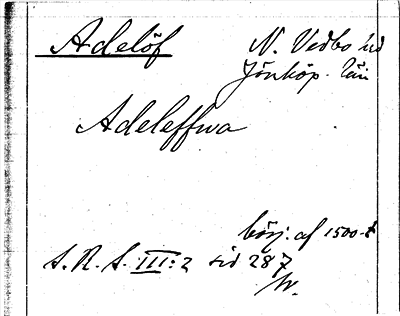 Adelöf
N. Vedbo hd
Jönköp. län
Adeleffwa
börj. af 1500-t
S.R.S. III:2 sid 287
W.